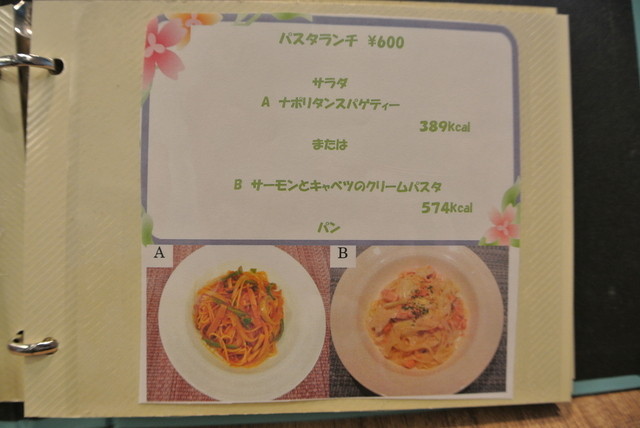 パスタランチ ¥600
サラダ
A ナポリタンスパゲティー
389kcal
または
B サーモンとキャベツのクリームパスタ
574kcal
パン
A
B